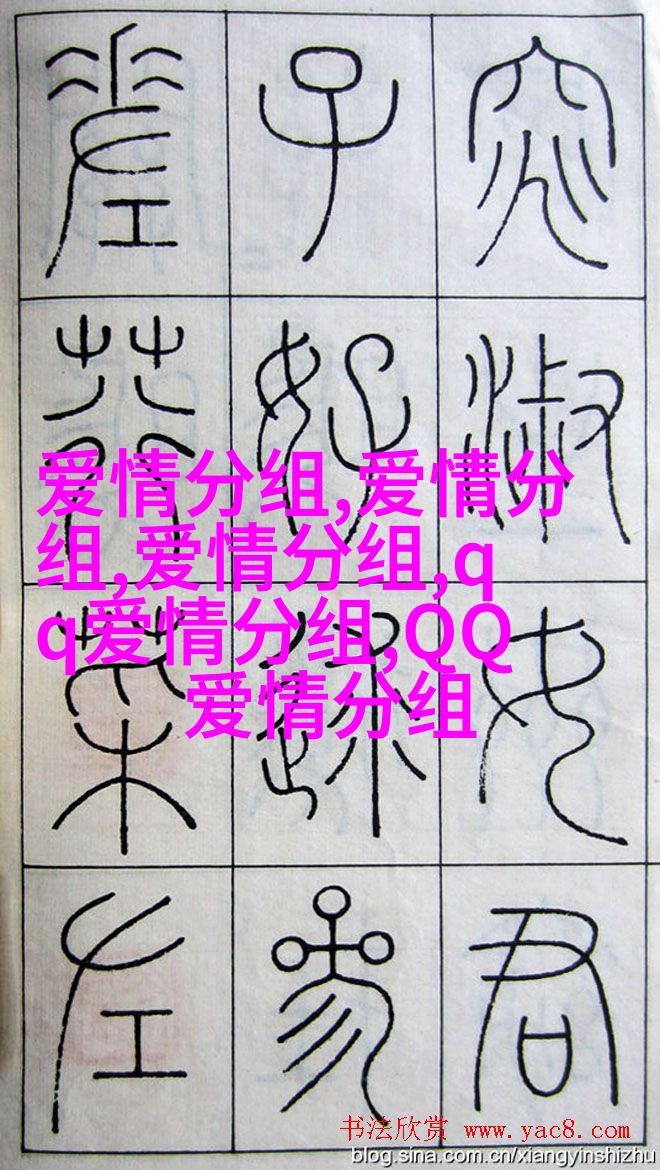 窕淑女君
子好逑參
差荇菜左
爱情分组,爱情分
组,爱情分组,q
q爱情分组,QQ
爱情分组
书法欣赏 www.yac8.com
blog.sina.com.cn/xiangyinshizhu